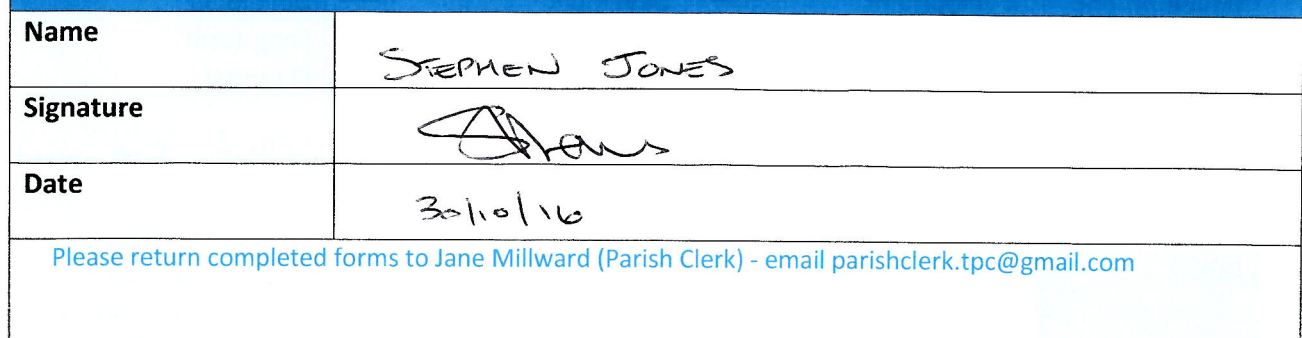 Name
STEPHEN JONES
Signature
Date
30/10/16
Please return completed forms to Jane Millward (Parish Clerk) - email parishclerk.tpc@gmail.com